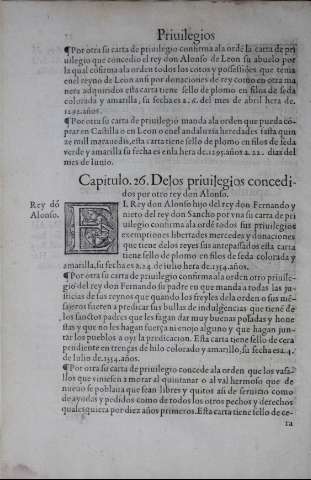 Priuilegios
¶Por otra su carta de priuilegio confirma ala ordē la carta de pri
uilegio que concedio el rey don Alonso de Leon su abuelo por
la qual cōfirma ala orden todos los cotos y possessiōes que tenia
enel reyno de Leon ansi por donaciones de rey como en otra ma
nera adquiridos esta carta tiene sello de plomo en filos de seda
colorada y amarilla, su fecha es a .6. del mes de abril hera de.
1292.años.
¶Por otra su carta de priuilegio manda ala orden que pueda cō-
prar en Castilla o en Leon o enel andaluzia heredades fasta quin
ze mill marauedis, esta carta tiene sello de plomo en filos de seda
verde y amarilla su fecha es enla hera de.1295.años a.22. dias del
mes de Iunio.
Capitulo. 26. Delos priuilegios concedi-
dos por otro rey don Alonso.
Rey dō
Alonso.
EL Rey don Alonso hijo del rey don Fernando y
nieto del rey don Sancho por vna su carta de pri
uilegio confirma ala ordē todos sus priuilegios
exemptiones libertades mercedes y donaciones
que tiene delos reyes sus antepassados esta carta
tiene sello de plomo en filos de seda colorada y
amarilla, su fecha es a.24. de iulio hera de.1354.años.
¶Por otra su carta de priuilegio confirma ala orden otro priuile-
gio del rey don Fernando su padre en que manda a todas las ju-
sticias de sus reynos que quando los freyles dela orden o sus mē-
sajeros fueren a predicar sus bullas de indulgencias que tiene de
los sanctos padres que les fagan dar muy buenas posadas y hone
stas y que no les hagan fuerça ni enojo alguno y que hagan jun-
tar los pueblos a oyr la predicacion. Esta carta tiene sello de cera
pendiente en trengas de hilo colorado y amarillo, su fecha es a.4.
de Iulio de.1354.años.
¶Por otra su carta de priuilegio concede ala orden que los vasa-
llos que viniesen a morar al quintanar o al val hermoso que de
nueuo se poblaua que sean libres y quitos asi de seruicio como
de ayudas y pedidos como de todos los otros pechos y derechos
qualesquiera por diez años primeros. Esta carta tiene sello de ce-
ra